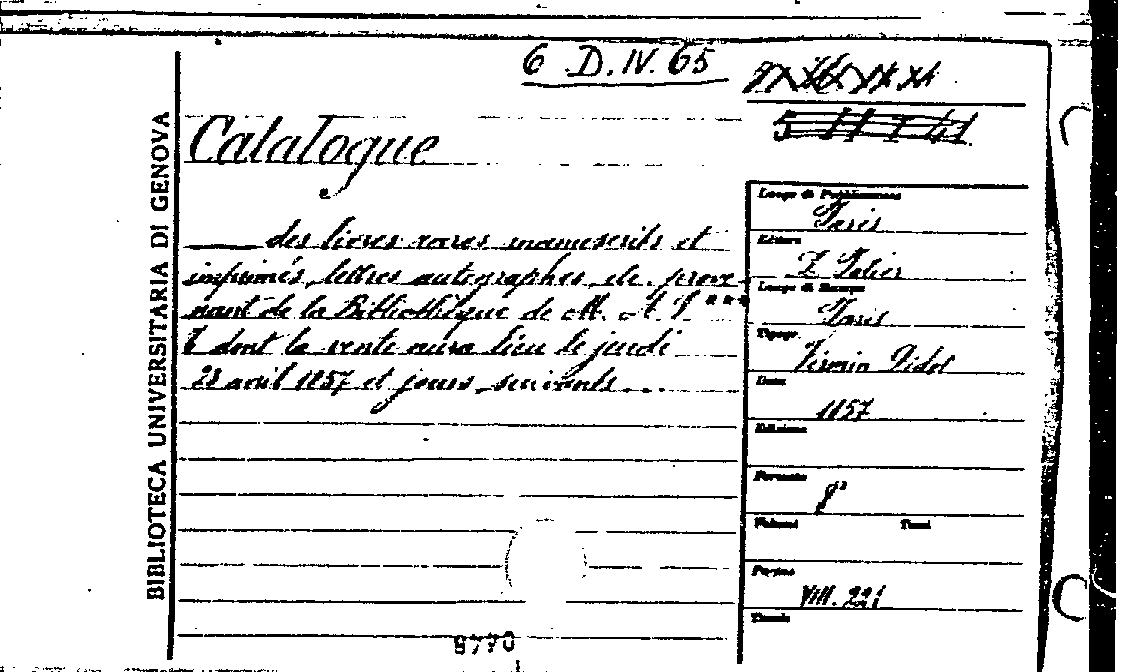 6 D.IV.65
BIBLIOTECA UNIVERSITARIA DI GENOVA
Catalogue
des livres rares manuscrits et
imprimés, lettres autographes, etc. prove-
nant de la Bibliothèque de M. A ***
dont la vente aura lieu le jeudi
avril 1857 et jours suivants...
Luogo di Pubblicazione
Paris
Editore
L. Potier
Luogo di Stampa
Paris
Tipogr.
Firmin Didot
Data
1857
Edizione
Formato
8°
Volumi Tomi
Pagine
VIII. 221
8770